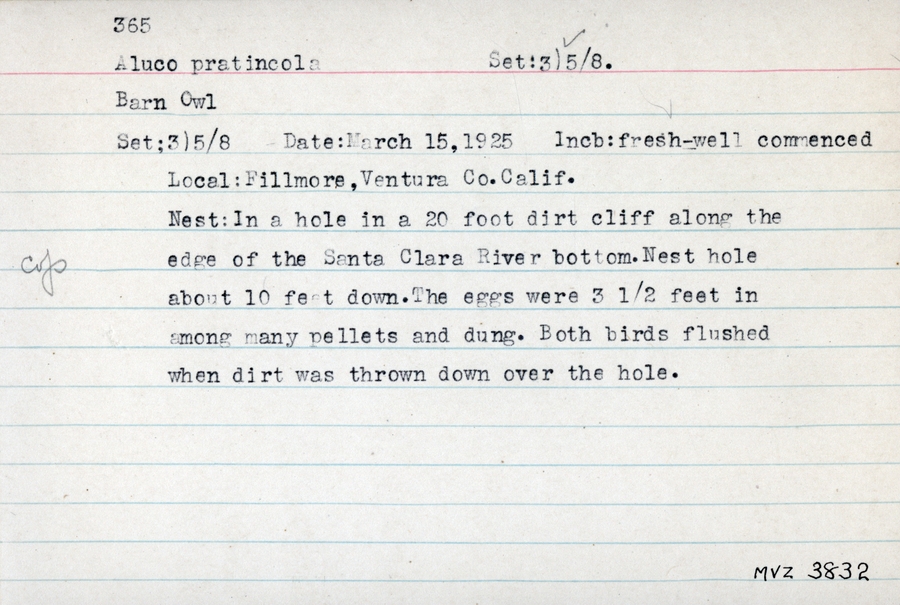 365
Aluco pratincola Set:3)5/8.
Barn Owl
Set;3)5/8 Date:March 15,1925 Incb:fresh-well commenced
Local:Fillmore,Ventura Co.Calif.
Nest:In a hole in a 20 foot dirt cliff along the
edge of the Santa Clara River bottom.Nest hole
about 10 feet down.The eggs were 3 1/2 feet in
among many pellets and dung. Both birds flushed
when dirt was thrown down over the hole.
MVZ 3832